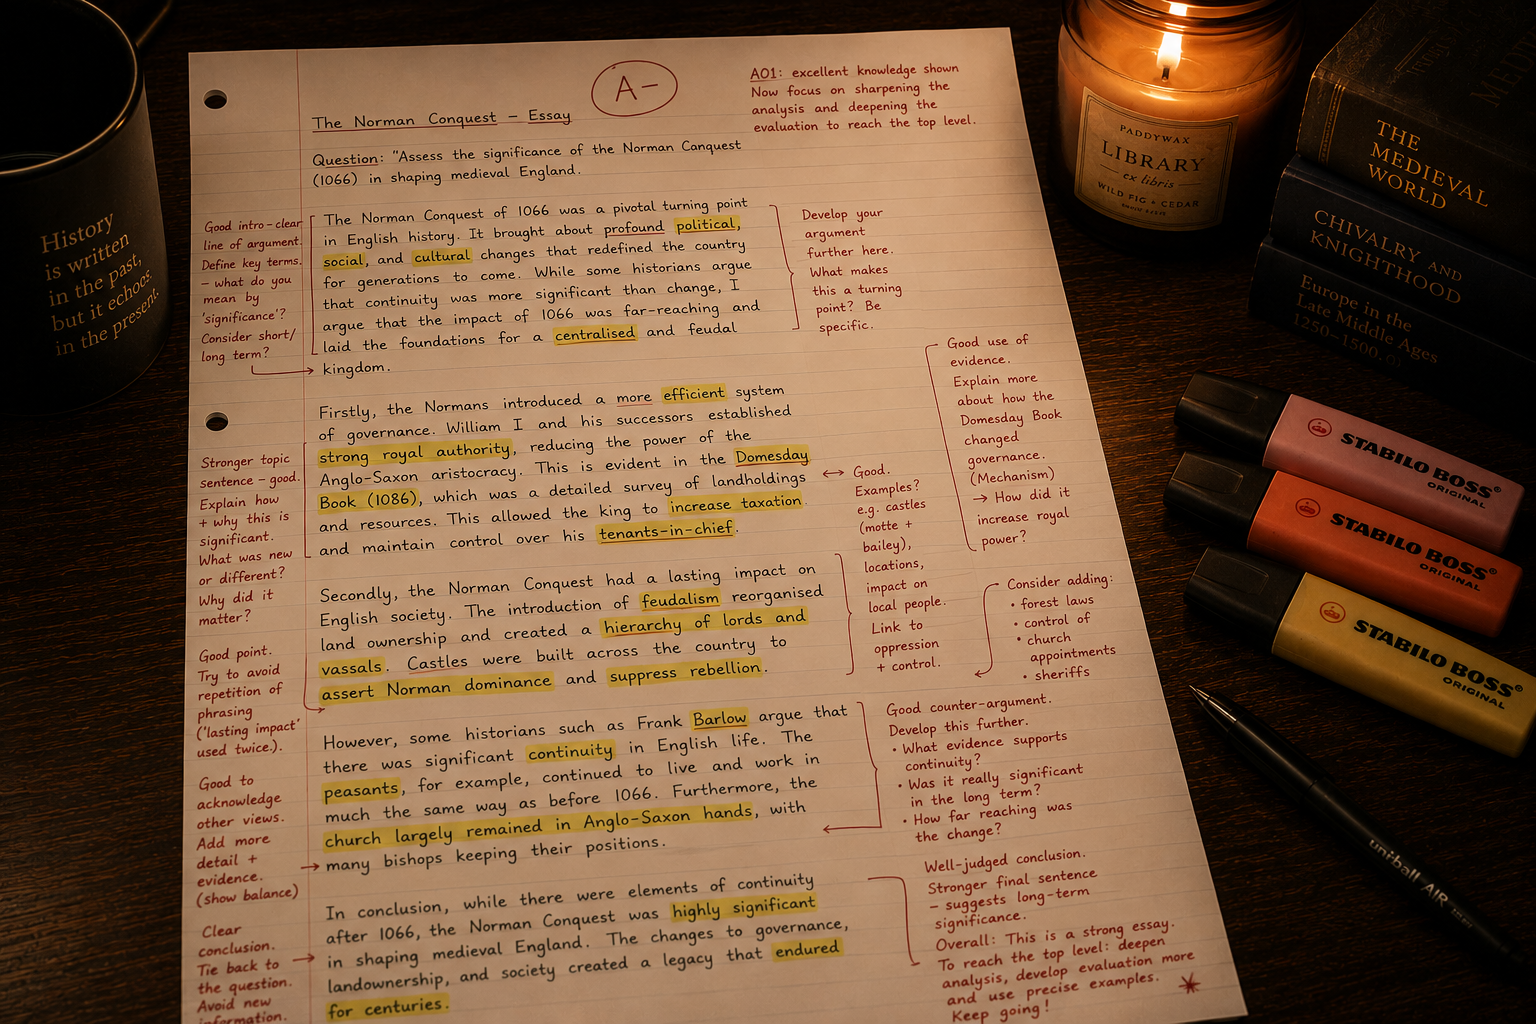 A-
AO1: excellent knowledge shown
Now focus on sharpening the
analysis and deepening the
evaluation to reach the top level.
The Norman Conquest – Essay
Question: "Assess the significance of the Norman Canquest
(1066) in shaping medieval England.
The Norman Conquest of 1066 was a pivotal turning point
in English history. It brought about profound political,
social, and cultural changes that redefined the country
for generations to come. While some historians argue
that continuity was more significant than change, I
argue that the impact of 1066 was far-reaching and
laid the foundations for a centralised and feudal
kingdom.
Good intro – clear
line of argument.
Define key terms.
– what do you
mean by
'significance'?
Consider short/
long term?
Develop your
argument
further here.
What makes
this a turning
point? Be
specific.
Firstly, the Normans introduced a more efficient system
of governance. William I and his successors established
strong royal authority, reducing the power of the
Anglo-Saxon aristocracy. This is evident in the Domesday
Book (1086), which was a detailed survey of landholdings
and resources. This allowed the king to increase taxation
and maintain control over his tenants-in-chief.
Stronger topic
sentence – good.
Explain how
+ why this is
significant.
What was new
or different?
Why did it
matter?
Good use of
evidence.
Explain more
about how the
Domesday Book
changed
governance.
(Mechanism)
→ How did it
increase royal
power?
↔ Good.
Examples?
e.g. castles
(motte +
bailey),
locations,
impact on
local people.
Link to
oppression
+ control.
Secondly, the Norman Conquest had a lasting impact on
English society. The introduction of feudalism reorganised
land ownership and created a hierarchy of lords and
vassals. Castles were built across the country to
assert Norman dominance and suppress rebellion.
Good point.
Try to avoid
repetition of
phrasing
('lasting impact'
used twice.).
Consider adding:
• forest laws
• control of
• church
appointments
• sheriffs
However, some historians such as Frank Barlow argue that
there was significant continuity in English life. The
peasants, for example, continued to live and work in
much the same way as before 1066. Furthermore, the
church largely remained in Anglo-Saxon hands, with
many bishops keeping their positions.
Good to
acknowledge
other views.
Add more
detail +
evidence.
(show balance)
Good counter-argument.
Develop this further.
• What evidence supports
continuity?
• Was it really significant
in the long term?
• How far reaching was
the change?
In conclusion, while there were elements of continuity
after 1066, the Norman Conquest was highly significant
in shaping medieval England. The changes to governance,
landownership, and society created a legacy that endured
for centuries.
Clear
conclusion.
Tie back to
the question.
Avoid new
information.
Well-judged conclusion.
Stronger final sentence
– suggests long-term
significance.
Overall: This is a strong essay.
To reach the top level: deepen
analysis, develop evaluation more
and use precise examples.
Keep going!
History
is written
in the past,
but it echoes
in the present.
PADDYWAX
LIBRARY
ex libris
WILD FIG & CEDAR
THE
MEDIEVAL
WORLD
CHIVALRY AND
KNIGHTHOOD
Europe in the
Late Middle Ages
STABILO BOSS®
ORIGINAL
STABILO BOSS®
ORIGINAL
STABILO BOSS®
ORIGINAL
uniball AIR